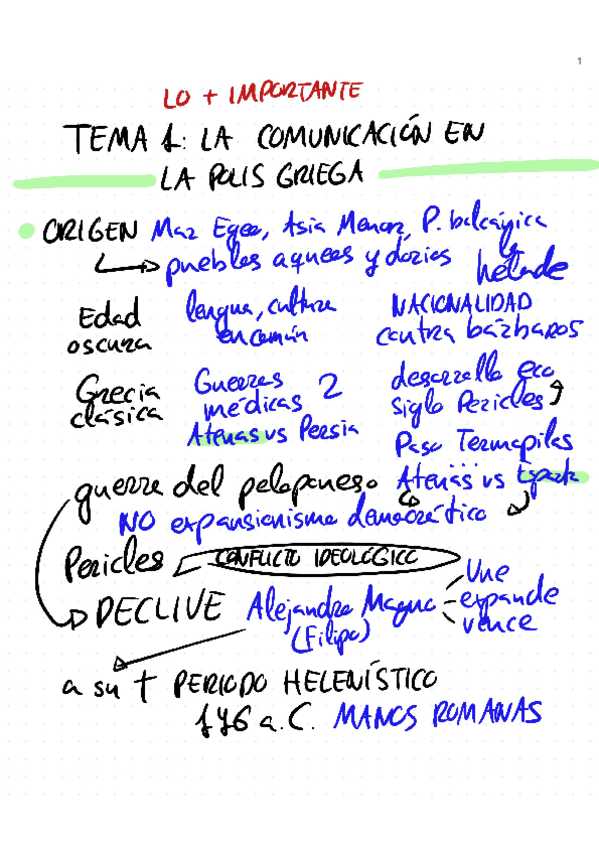 1
LO + IMPORTANTE
TEMA 1: LA COMUNICACIÓN EN
LA POLIS GRIEGA
ORIGEN Mar Egeo, Asia Menor, P. balcánica
pueblos aqueos y dorios
helade
Edad oscura
lengua, cultura en común
NACIONALIDAD contra bárbaros
Grecia clásica
Guerras médicas 2
Atenas vs Persia
desarrollo eco
siglo Pericles
Paso Termopilas
guerra del peloponeso Atenas vs Esparta
NO expansionismo democrático
Pericles CONFLICTO IDEOLÓGICO
DECLIVE Alejandro Magno (Filipo)
Une
expande
vence
a su † PERIODO HELENÍSTICO
146 a.C. MANOS ROMANAS